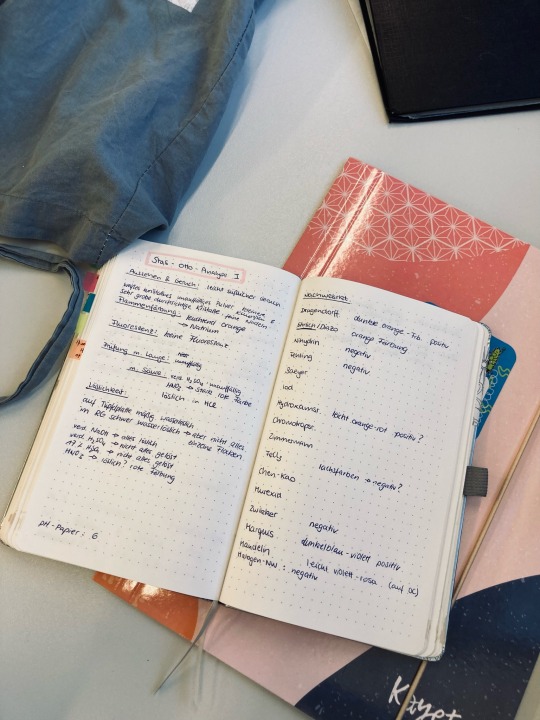 Stas - Otto - Analyse I
Aussehen & Geruch: leicht süßlicher Geruch
weißes kristallines unauffälliges Pulver, kleinere &
sehr große durchsichtige Kristalle, feine Nadeln
Flammenfärbung: leuchtend orange
→ Natrium
Fluoreszenz: keine Fluoreszenz
Prüfung m. Lauge:
unauffällig
m. Säure: verd. H2SO4 - unauffällig
HNO3 → starke rote Farbe
löslich in HCl
Löslichkeit:
auf Tüpfelplatte mäßig wasserlöslich
im RG schwer wasserlöslich → aber nicht alles
einzelne Flocken
verd. NaOH → alles löslich
verd. H2SO4 → nicht alles gelöst
→ nicht alles gelöst
HNO3 → löslich? rote Färbung
pH-Papier: 6
Nachweisrkt.
Dragendorff dunkle orange - positiv
/Diazo orange Färbung
Ninhydrin negativ
Fehling negativ
Iod
Hydroxamat. leicht orange-rot positiv?
Chromotrop.
Zimmermann
→ negativ?
Chen-Kao
Murexid
Zwikker
Marquis negativ
Mandelin dunkelblau-violett positiv
leicht violett-rosa (auf DC)
Halogen-NW: negativ